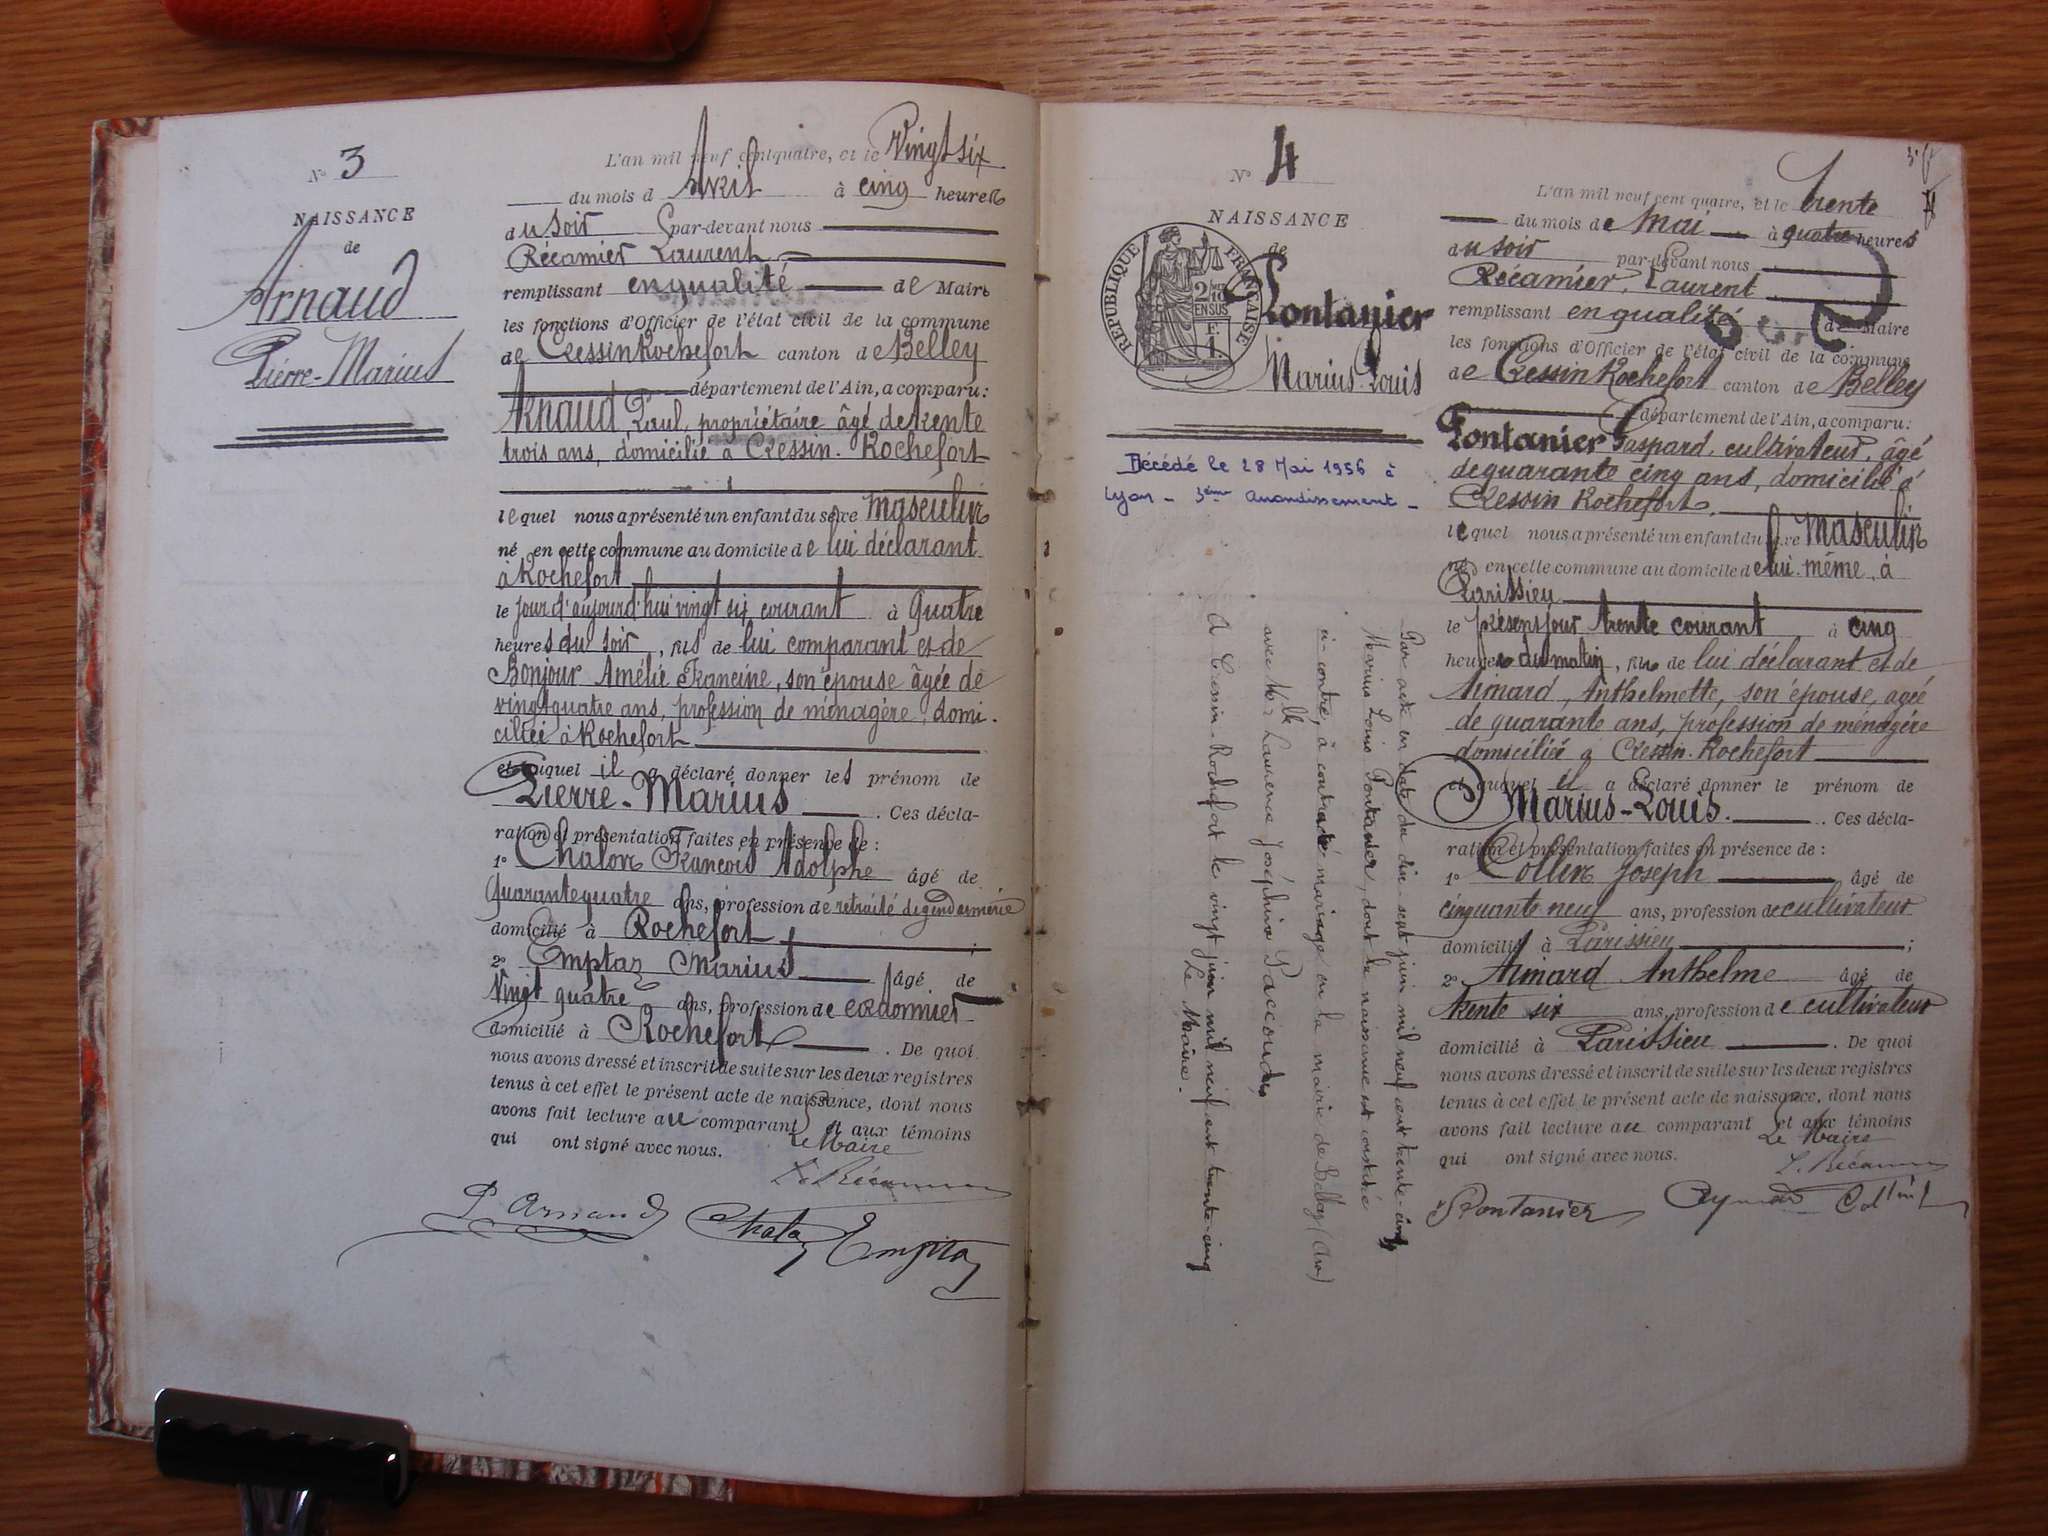 N° 3
NAISSANCE
de
Arnaud
Pierre-Marius
L'an mil neuf cent quatre, et le Vingt six
du mois d Avril à cinq heures
du soir par-devant nous
Récamier Laurent
remplissant en qualité de Maire
les fonctions d'Officier de l'état civil de la commune
de Cressin Rochefort canton de Belley
département de l'Ain, a comparu :
Arnaud, Paul, propriétaire âgé de trente
trois ans, domicilié à Cressin-Rochefort
lequel nous a présenté un enfant du sexe masculin
né en cette commune au domicile de lui déclarant
à Rochefort
le jour d'aujourd'hui vingt six courant à Quatre
heures du soir, fils de lui comparant et de
Bonjour Amélie Francine, son épouse âgée de
vingt quatre ans, profession de ménagère, domi-
ciliée à Rochefort
et auquel il a déclaré donner les prénom de
Pierre-Marius. Ces décla-
ration et présentation faites en présence de :
1° Chalon François Adolphe âgé de
Quarante quatre ans, profession de retraité de gendarmerie
domicilié à Rochefort ;
2° Emptaz Marius âgé de
Vingt quatre ans, profession de cordonnier
domicilié à Rochefort. De quoi
nous avons dressé et inscrit de suite sur les deux registres
tenus à cet effet le présent acte de naissance, dont nous
avons fait lecture au comparant et aux témoins
qui ont signé avec nous.
Le Maire
L. Récamier
P. Arnaud Chalon Emptaz
N° 4
NAISSANCE
de
RÉPUBLIQUE FRANÇAISE
2/10 EN SUS
F. 1.
Pontanier
Marius-Louis
Décédé le 28 Mai 1956 à
Lyon - 3ème Arrondissement -
Par acte en date du dix sept juin mil neuf cent trente-cinq
Marius Louis Pontanier, dont la naissance est constatée
ci-contre, à contracté mariage en la mairie de Belley (Ain)
avec Melle Laurence Joséphine Paccoud
A Cressin-Rochefort le vingt juin mil neuf cent trente-cinq
Le Maire.
L'an mil neuf cent quatre, et le trente
du mois de Mai à quatre heures
du soir par-devant nous
Récamier, Laurent
remplissant en qualité de Maire
les fonctions d'Officier de l'état civil de la commune
de Cressin Rochefort canton de Belley
département de l'Ain, a comparu :
Pontanier Gaspard, cultivateur, âgé
de quarante cinq ans, domicilié à
Cressin Rochefort.
lequel nous a présenté un enfant du sexe Masculin
né en cette commune au domicile de lui-même, à
Parissieu
le présent jour trente courant à cinq
heures du matin, fils de lui déclarant et de
Aimard, Anthelmette, son épouse, agée
de quarante ans, profession de ménagère
domiciliés à Cressin-Rochefort
et auquel il a déclaré donner le prénom de
Marius-Louis. Ces décla-
ration et présentation faites en présence de :
1° Collin Joseph âgé de
cinquante neuf ans, profession de cultivateur
domicilié à Parissieu ;
2° Aimard Anthelme âgé de
trente six ans, profession de cultivateur
domicilié à Parissieu. De quoi
nous avons dressé et inscrit de suite sur les deux registres
tenus à cet effet le présent acte de naissance, dont nous
avons fait lecture au comparant et aux témoins
qui ont signé avec nous.
Le Maire
L. Récamier
Pontanier Aymard Collin